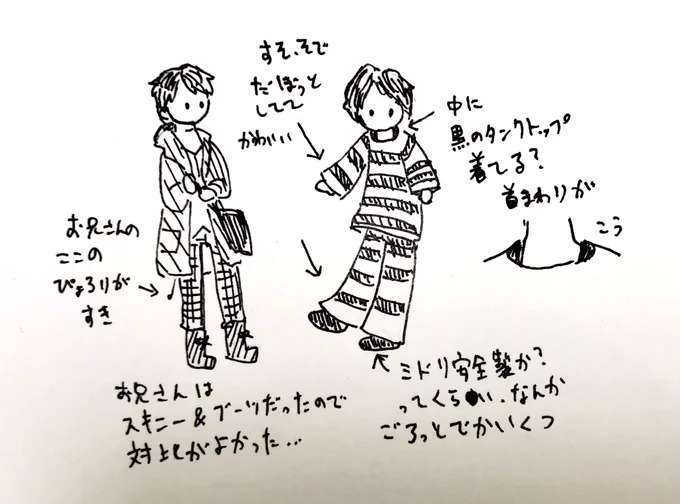 すそ、そで
だぼっと
してて
かわいい
中に
黒のタンクトップ
着てる?
首まわりが
こう
お兄さんの
ここの
ぴょろりが
すき
お兄さんは
スキニー&ブーツだったので
対比がよかった…
ミドリ安全製か?
ってくらい、なんか
ごろっとでかいくつ